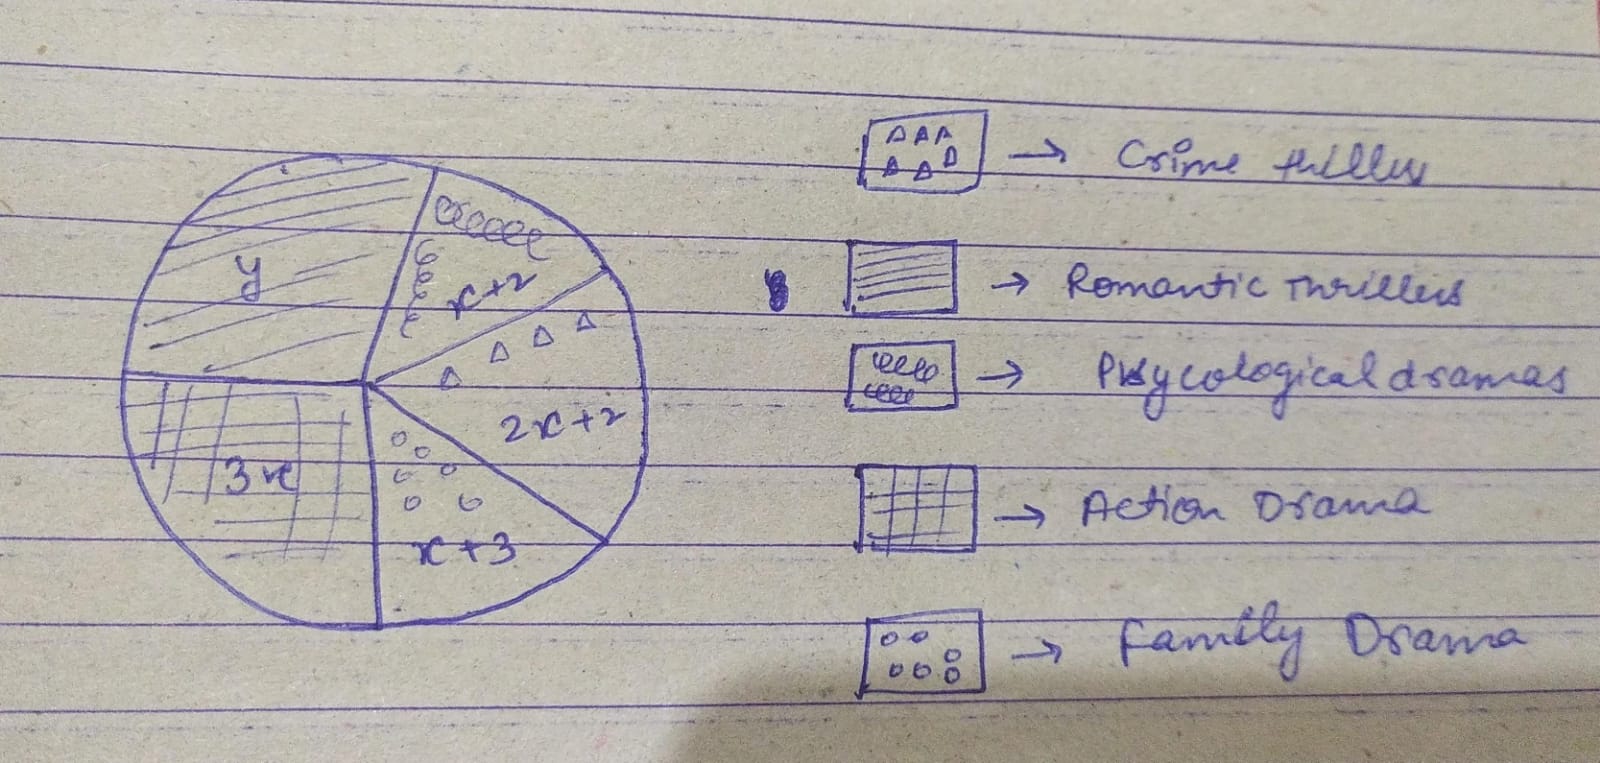 y
x+2
2x+2
3x
x+3
→ Crime thillers
→ Romantic Thrillers
→ Phycological dramas
→ Action Drama
→ Family Drama